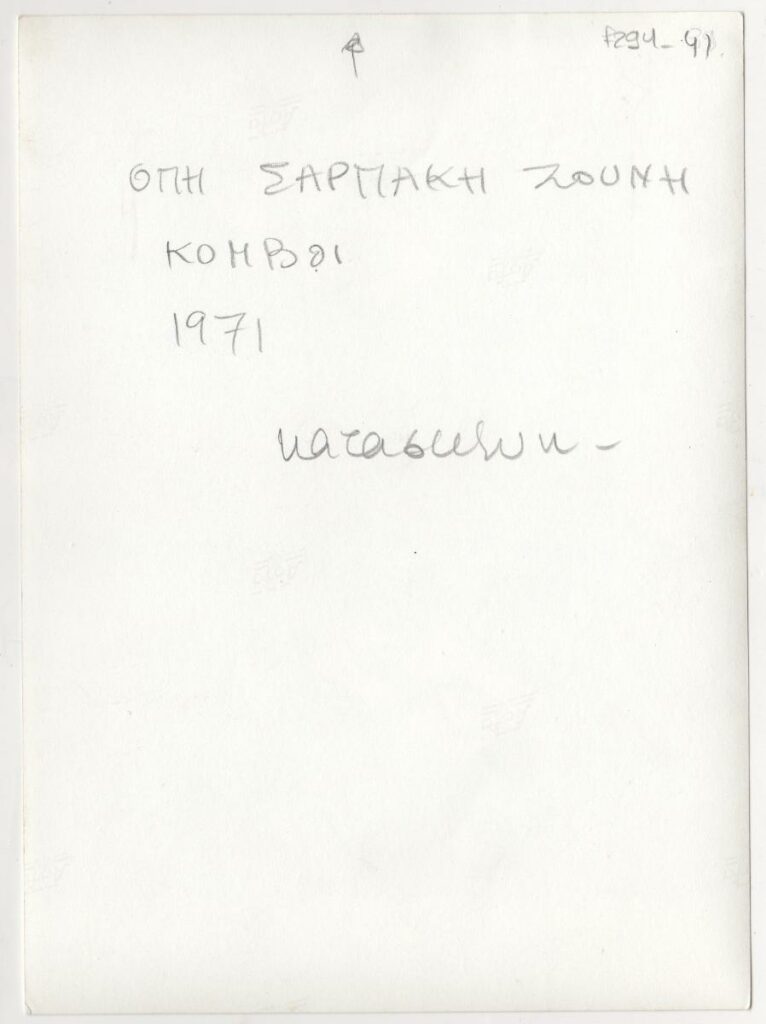 ΟΠΗ ΣΑΡΠΑΚΗ ΖΟΥΝΗ
ΚΟΜΒΟΙ
1971
κατασκευη -